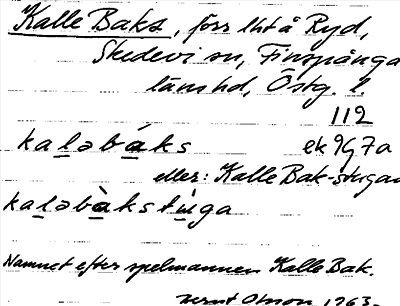 Kalle Baks, förr lht å Ryd,
Skedevi sn, Finspånga
läns hd, Östg. l
112
kaləbáks ek 9G7a
eller: Kalle Bak-stugan
kaləbàkstuga
Namnet efter spelmannen Kalle Bak.
1963.